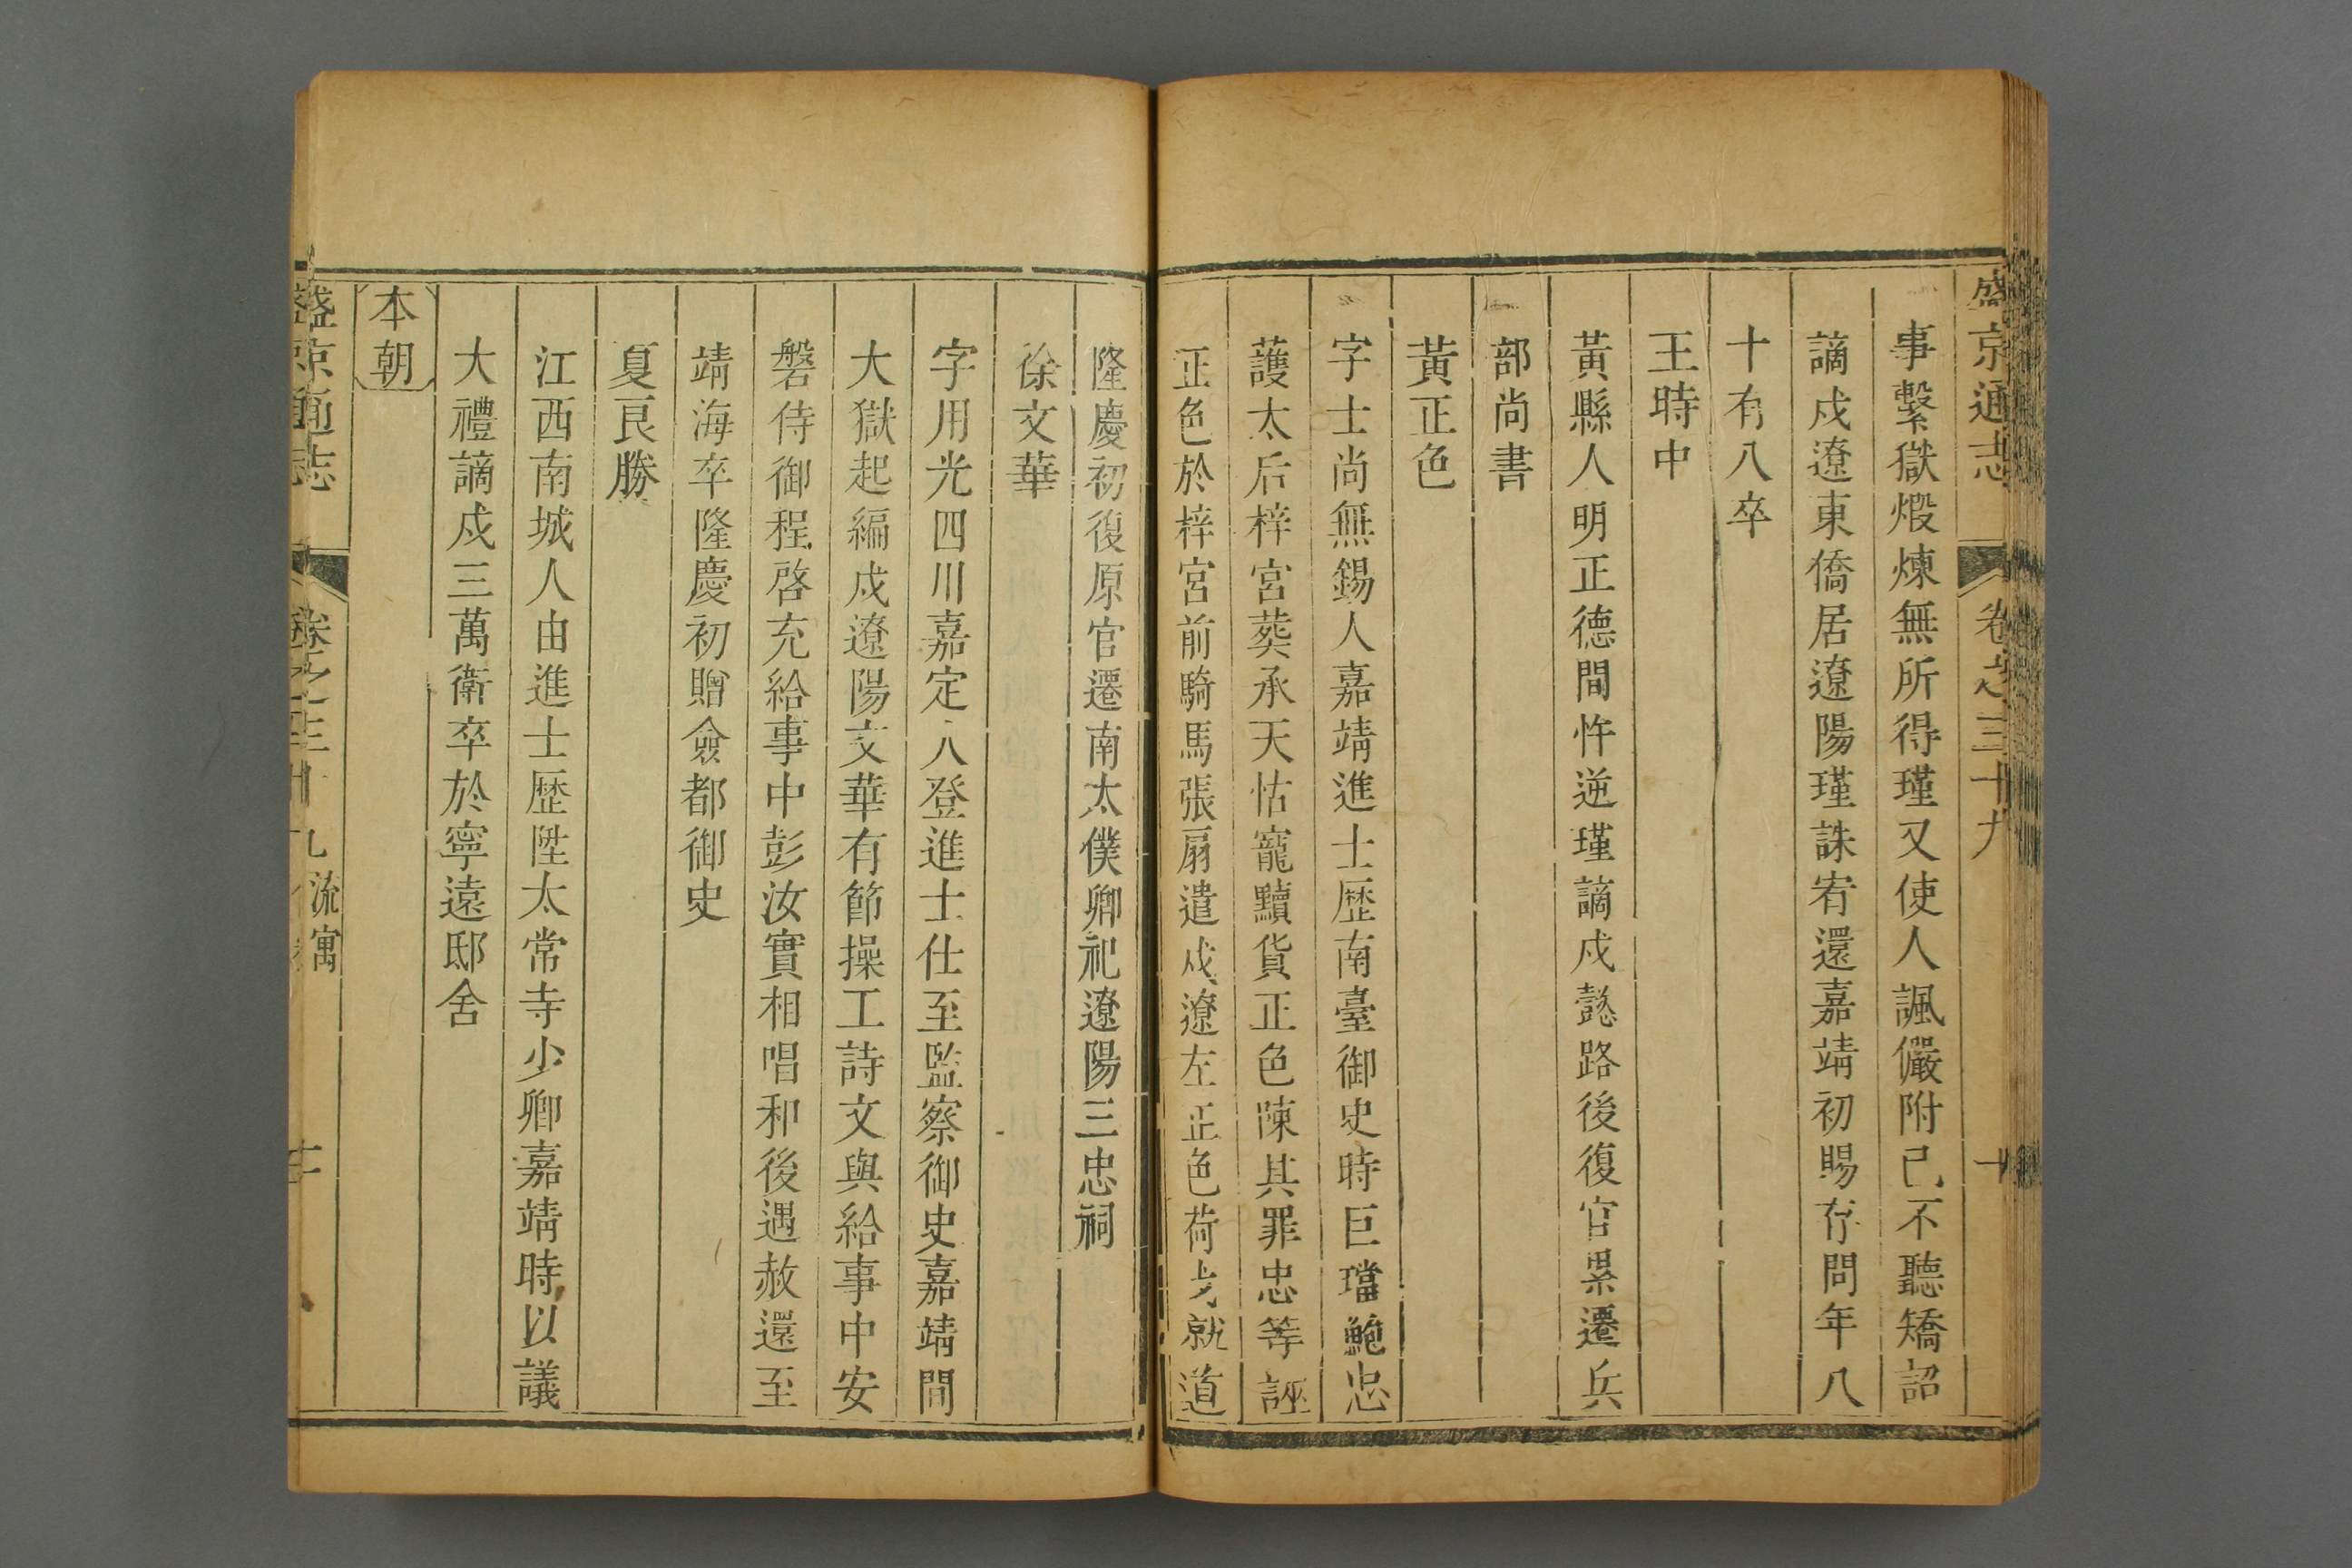 盛京通志 卷之三十九
事繫獄煅煉無所得瑾又使人諷儼附己不聽矯詔
謫戍遼東僑居遼陽瑾誅宥還嘉靖初賜存問年八
十有八卒
王時中
黃縣人明正德間忤逆瑾謫戍懿路後復官累遷兵
部尚書
黃正色
字士尚無錫人嘉靖進士歷南臺御史時巨璫鮑忠
護太后梓宮葬承天怙寵黷貨正色陳其罪忠等誣
正色於梓宮前騎馬張扇遣戍遼左正色荷戈就道
隆慶初復原官遷南太僕卿祀遼陽三忠祠
徐文華
字用光四川嘉定人登進士仕至監察御史嘉靖間
大獄起編戍遼陽文華有節操工詩文與給事中安
磐侍御程啓充給事中彭汝實相唱和後遇赦還至
靖海卒隆慶初贈僉都御史
夏良勝
江西南城人由進士歷陞太常寺少卿嘉靖時以議
大禮謫戍三萬衛卒於寧遠邸舍
本朝
盛京通志 卷之三十九 流寓